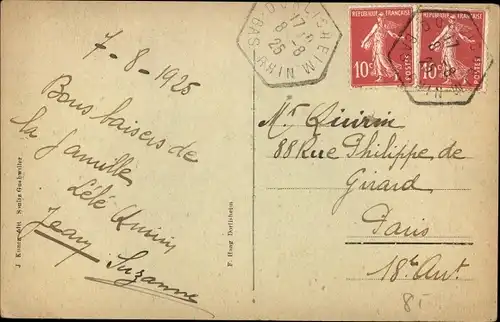 7-8-1925
Bons baisers de
la famille
Lélé Quirin
Jean
Suzanne
Mr Quirin
88 Rue Philippe de
Girard
Paris
18e Art
85
J. Koenig édit. Soultz Guebwiller
F. Haag Dorlisheim
REPUBLIQUE FRANÇAISE
10c
POSTES
REPUBLIQUE FRANÇAISE
10c
POSTES
DORLISHEIM
17
8-8
25
BAS-RHIN